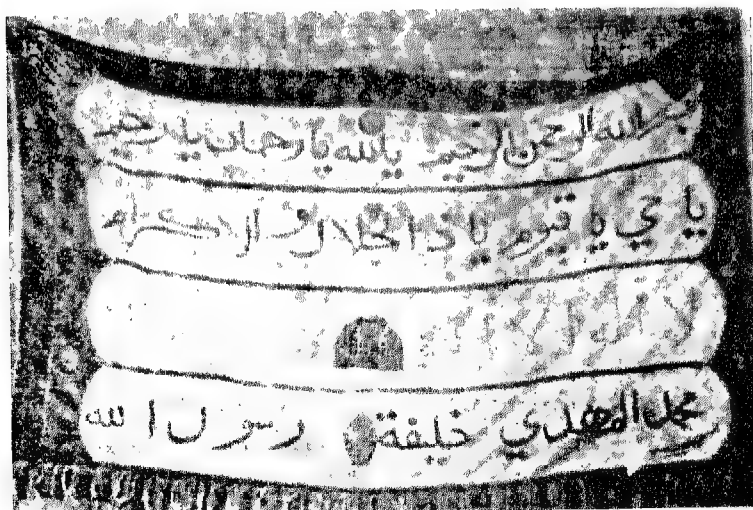 بسم الله الرحمن الرحيم يالله يارحمان يارحيم
يا حي يا قيوم يا ذا الجلال و الاكرام
لا اله الا
محمد المهدي خليفة رسول الله